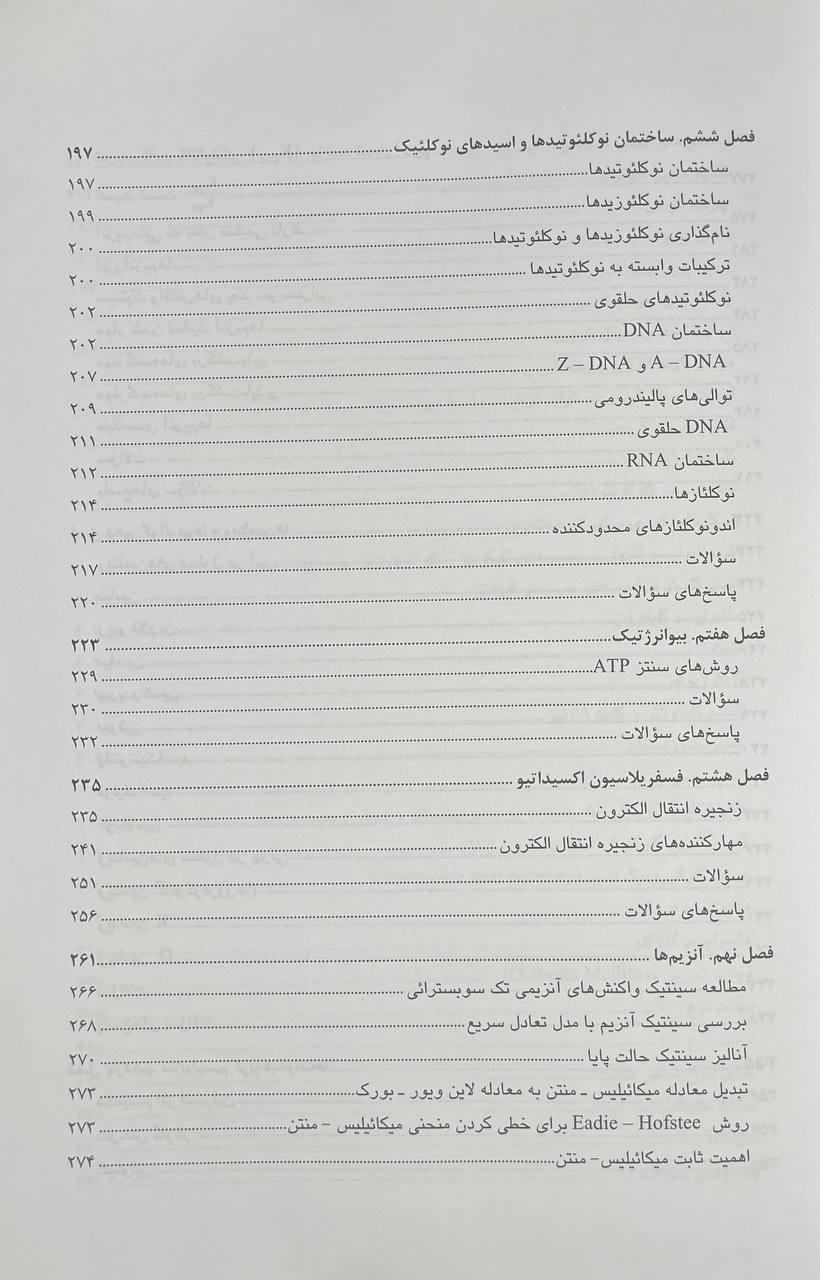 فصل ششم. ساختمان نوکلئوتیدها و اسیدهای نوکلئیک ۱۹۷
ساختمان نوکلئوتیدها ۱۹۷
ساختمان نوکلئوزیدها ۱۹۹
نام‌گذاری نوکلئوزیدها و نوکلئوتیدها ۲۰۰
ترکیبات وابسته به نوکلئوتیدها ۲۰۰
نوکلئوتیدهای حلقوی ۲۰۲
ساختمان DNA ۲۰۲
A – DNA و Z – DNA ۲۰۷
توالی‌های پالیندرومی ۲۰۹
DNA حلقوی ۲۱۱
ساختمان RNA ۲۱۲
نوکلئازها ۲۱۴
اندونوکلئازهای محدودکننده ۲۱۴
سؤالات ۲۱۷
پاسخ‌های سؤالات ۲۲۰
فصل هفتم. بیوانرژتیک ۲۲۳
روش‌های سنتز ATP ۲۲۹
سؤالات ۲۳۰
پاسخ‌های سؤالات ۲۳۲
فصل هشتم. فسفریلاسیون اکسیداتیو ۲۳۵
زنجیره انتقال الکترون ۲۳۵
مهارکننده‌های زنجیره انتقال الکترون ۲۴۱
سؤالات ۲۵۱
پاسخ‌های سؤالات ۲۵۶
فصل نهم. آنزیم‌ها ۲۶۱
مطالعه سینتیک واکنش‌های آنزیمی تک سوبسترائی ۲۶۶
بررسی سینتیک آنزیم با مدل تعادل سریع ۲۶۸
آنالیز سینتیک حالت پایا ۲۷۰
تبدیل معادله میکائیلیس – منتن به معادله لاین ویور – بورک ۲۷۳
روش Eadie – Hofstee برای خطی کردن منحنی میکائیلیس – منتن ۲۷۳
اهمیت ثابت میکائیلیس – منتن ۲۷۴